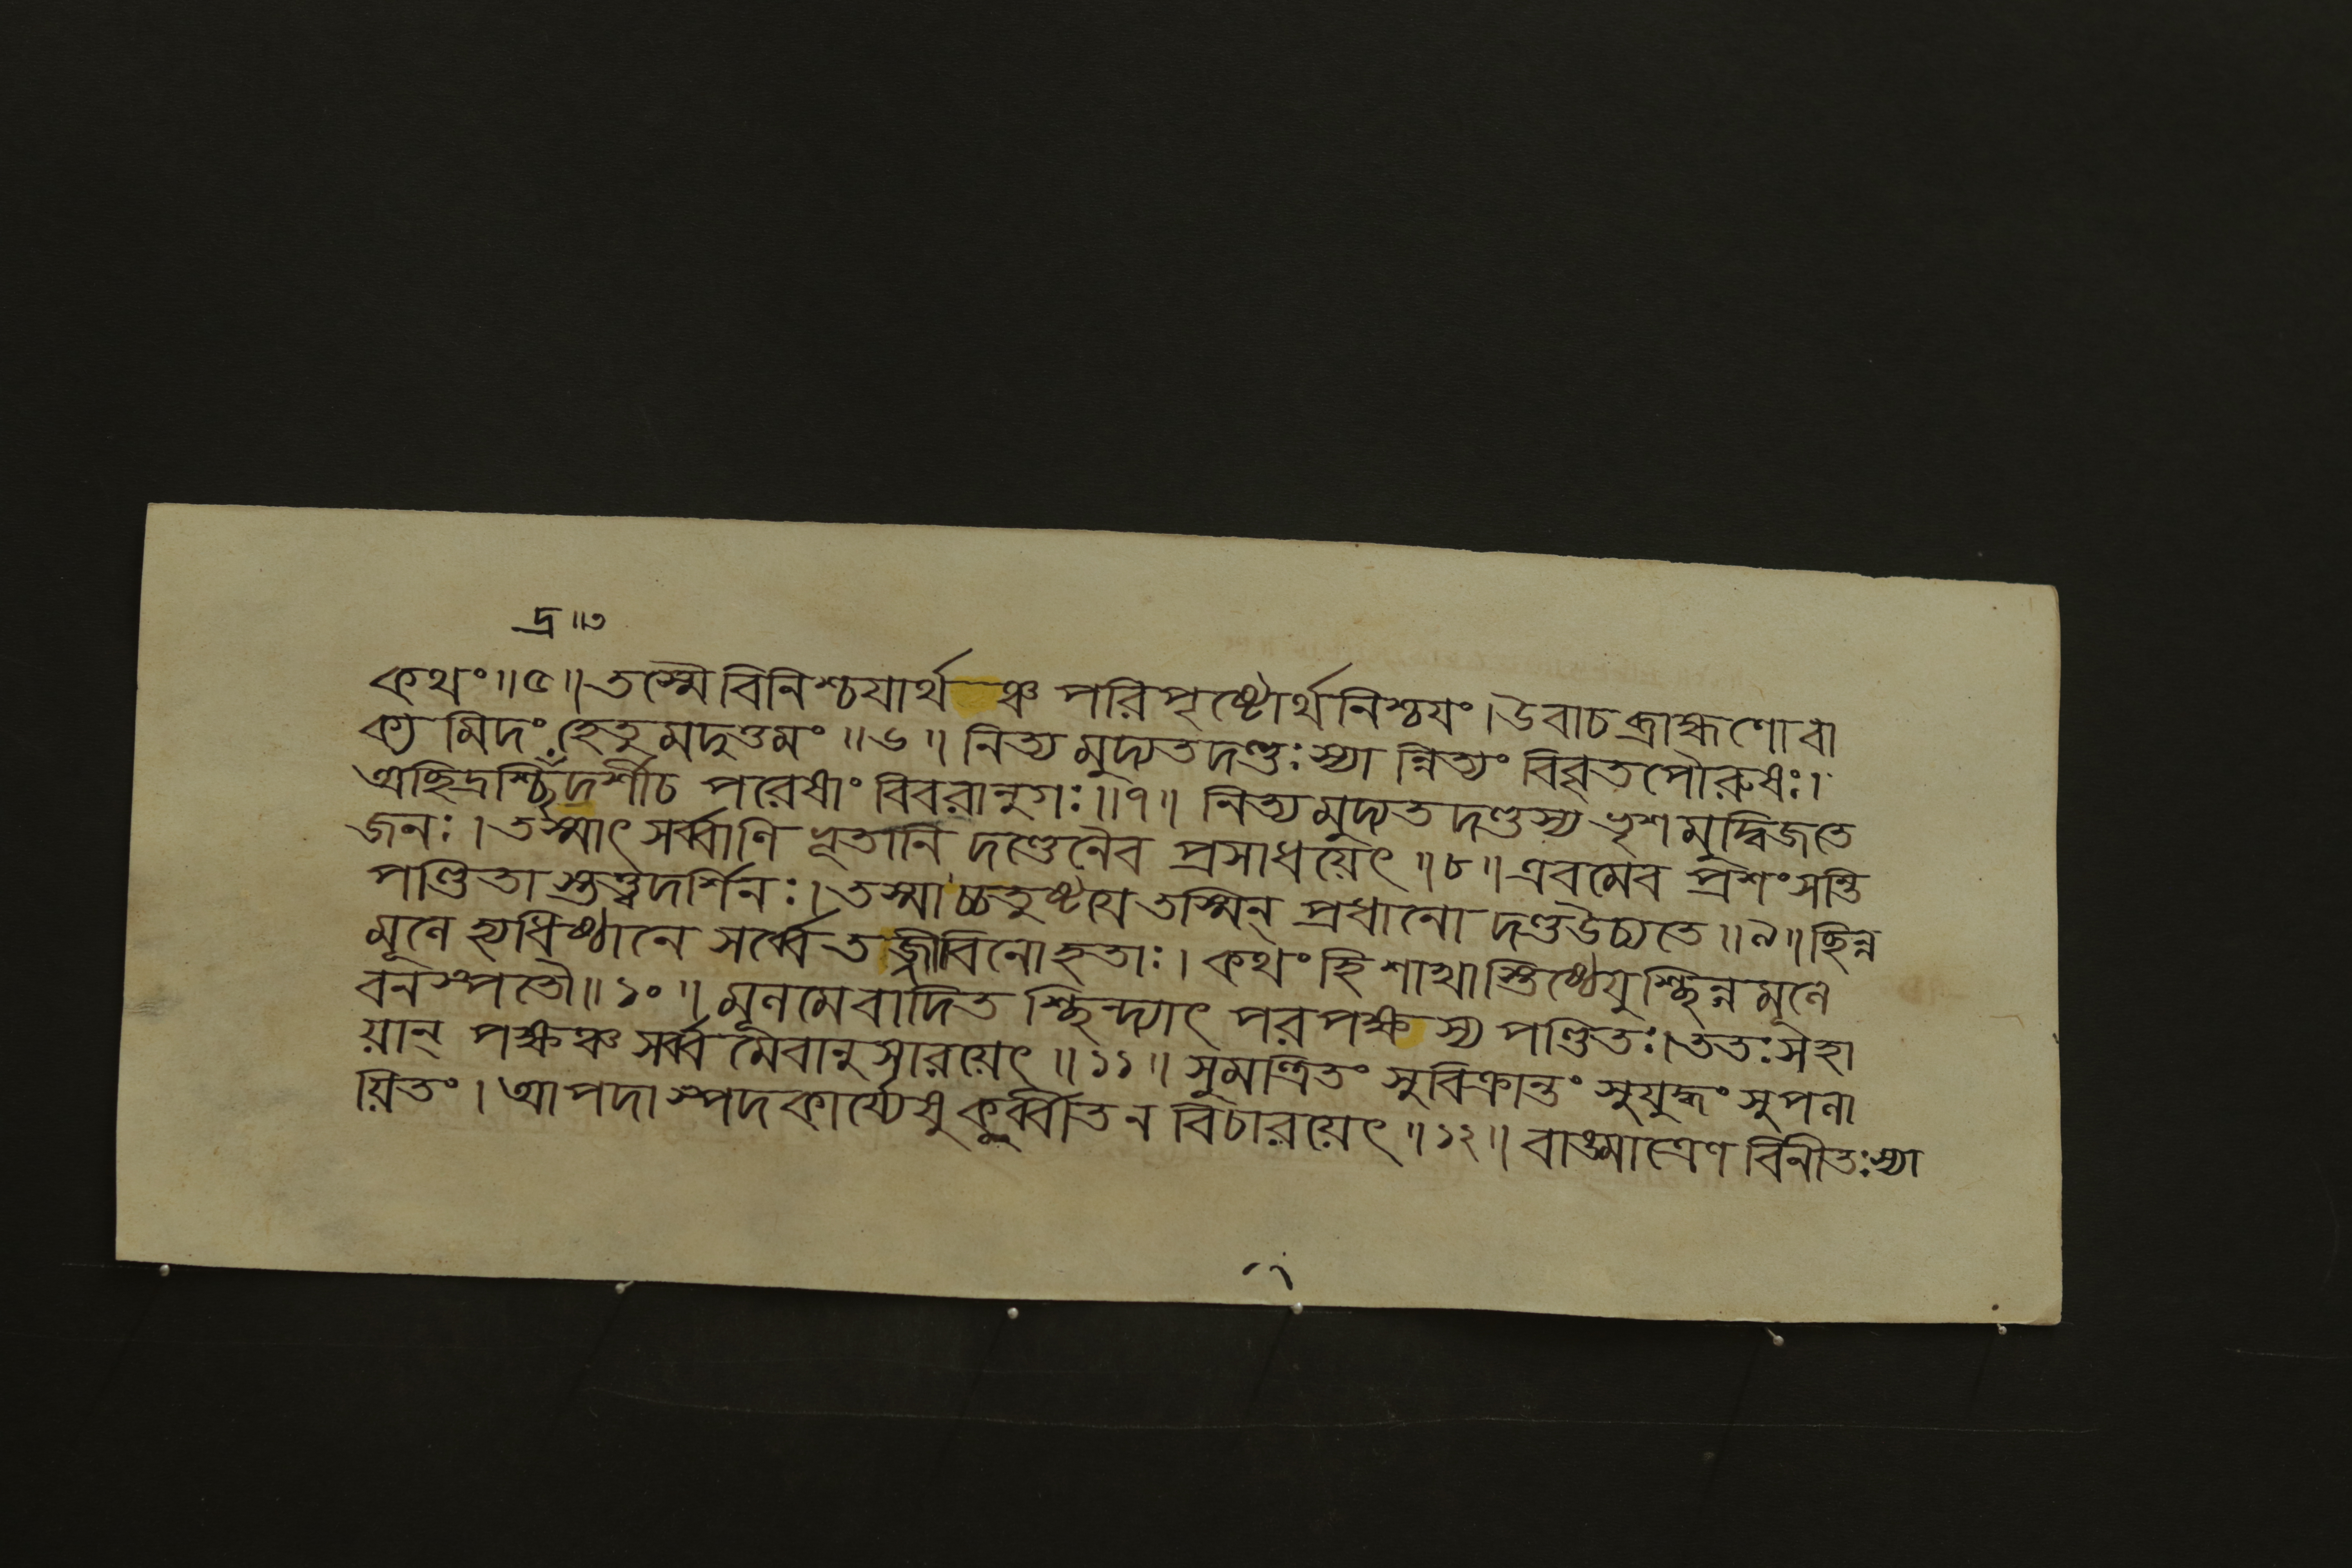 দ্র ॥৩
কথং॥৫॥তস্মৈ বিনিশ্চযার্থ ঞ্চ পরিপৃষ্টোর্থনিশ্চযং।উবাচ ব্রাহ্মণো বা
ক্য মিদং হেতু মদুত্তমং ॥৬॥ নিত্য মুদ্যতদণ্ডঃস্যা ন্নিত্যং বিবৃতপৌরুষঃ।
অচ্ছিদ্রশ্ছিদ্রদর্শীচ পরেষাং বিবরানুগঃ॥৭॥ নিত্যমুদ্যত দণ্ডস্য ভৃশমুদ্বিজতে
জনঃ। তস্মাৎ সর্ব্বাণি ভূতানি দণ্ডেনৈব প্রসাধয়েৎ ॥৮॥ এবমেব প্রশংসন্তি
পণ্ডিতাস্তত্ত্বদর্শিনঃ। তস্মাচ্চতুষ্টযে তস্মিন্ প্রধানো দণ্ডউচ্যতে ॥৯॥ ছিন্ন
মূলে হ্যধিষ্ঠানে সর্ব্বে তজ্জীবিনোহতাঃ। কথং হি শাখাস্তিষ্ঠেযুশ্ছিন্ন মূলে
বনস্পতৌ॥১০॥ মূলমেবাদিত শ্ছিন্দ্যাৎ পরপক্ষ স্য পণ্ডিতঃ। ততঃ সহা
য়ান্ পক্ষঞ্চ সর্ব্ব মেবানুসারয়েৎ ॥১১॥ সুমন্ত্রিতং সুবিক্রান্তং সুযুদ্ধং সুপলা
য়িতং। আপদাস্পদকার্য্যেষু কুর্ব্বীত ন বিচারয়েৎ ॥১২॥ বাঙ্মাত্রেণ বিনীতঃস্যা